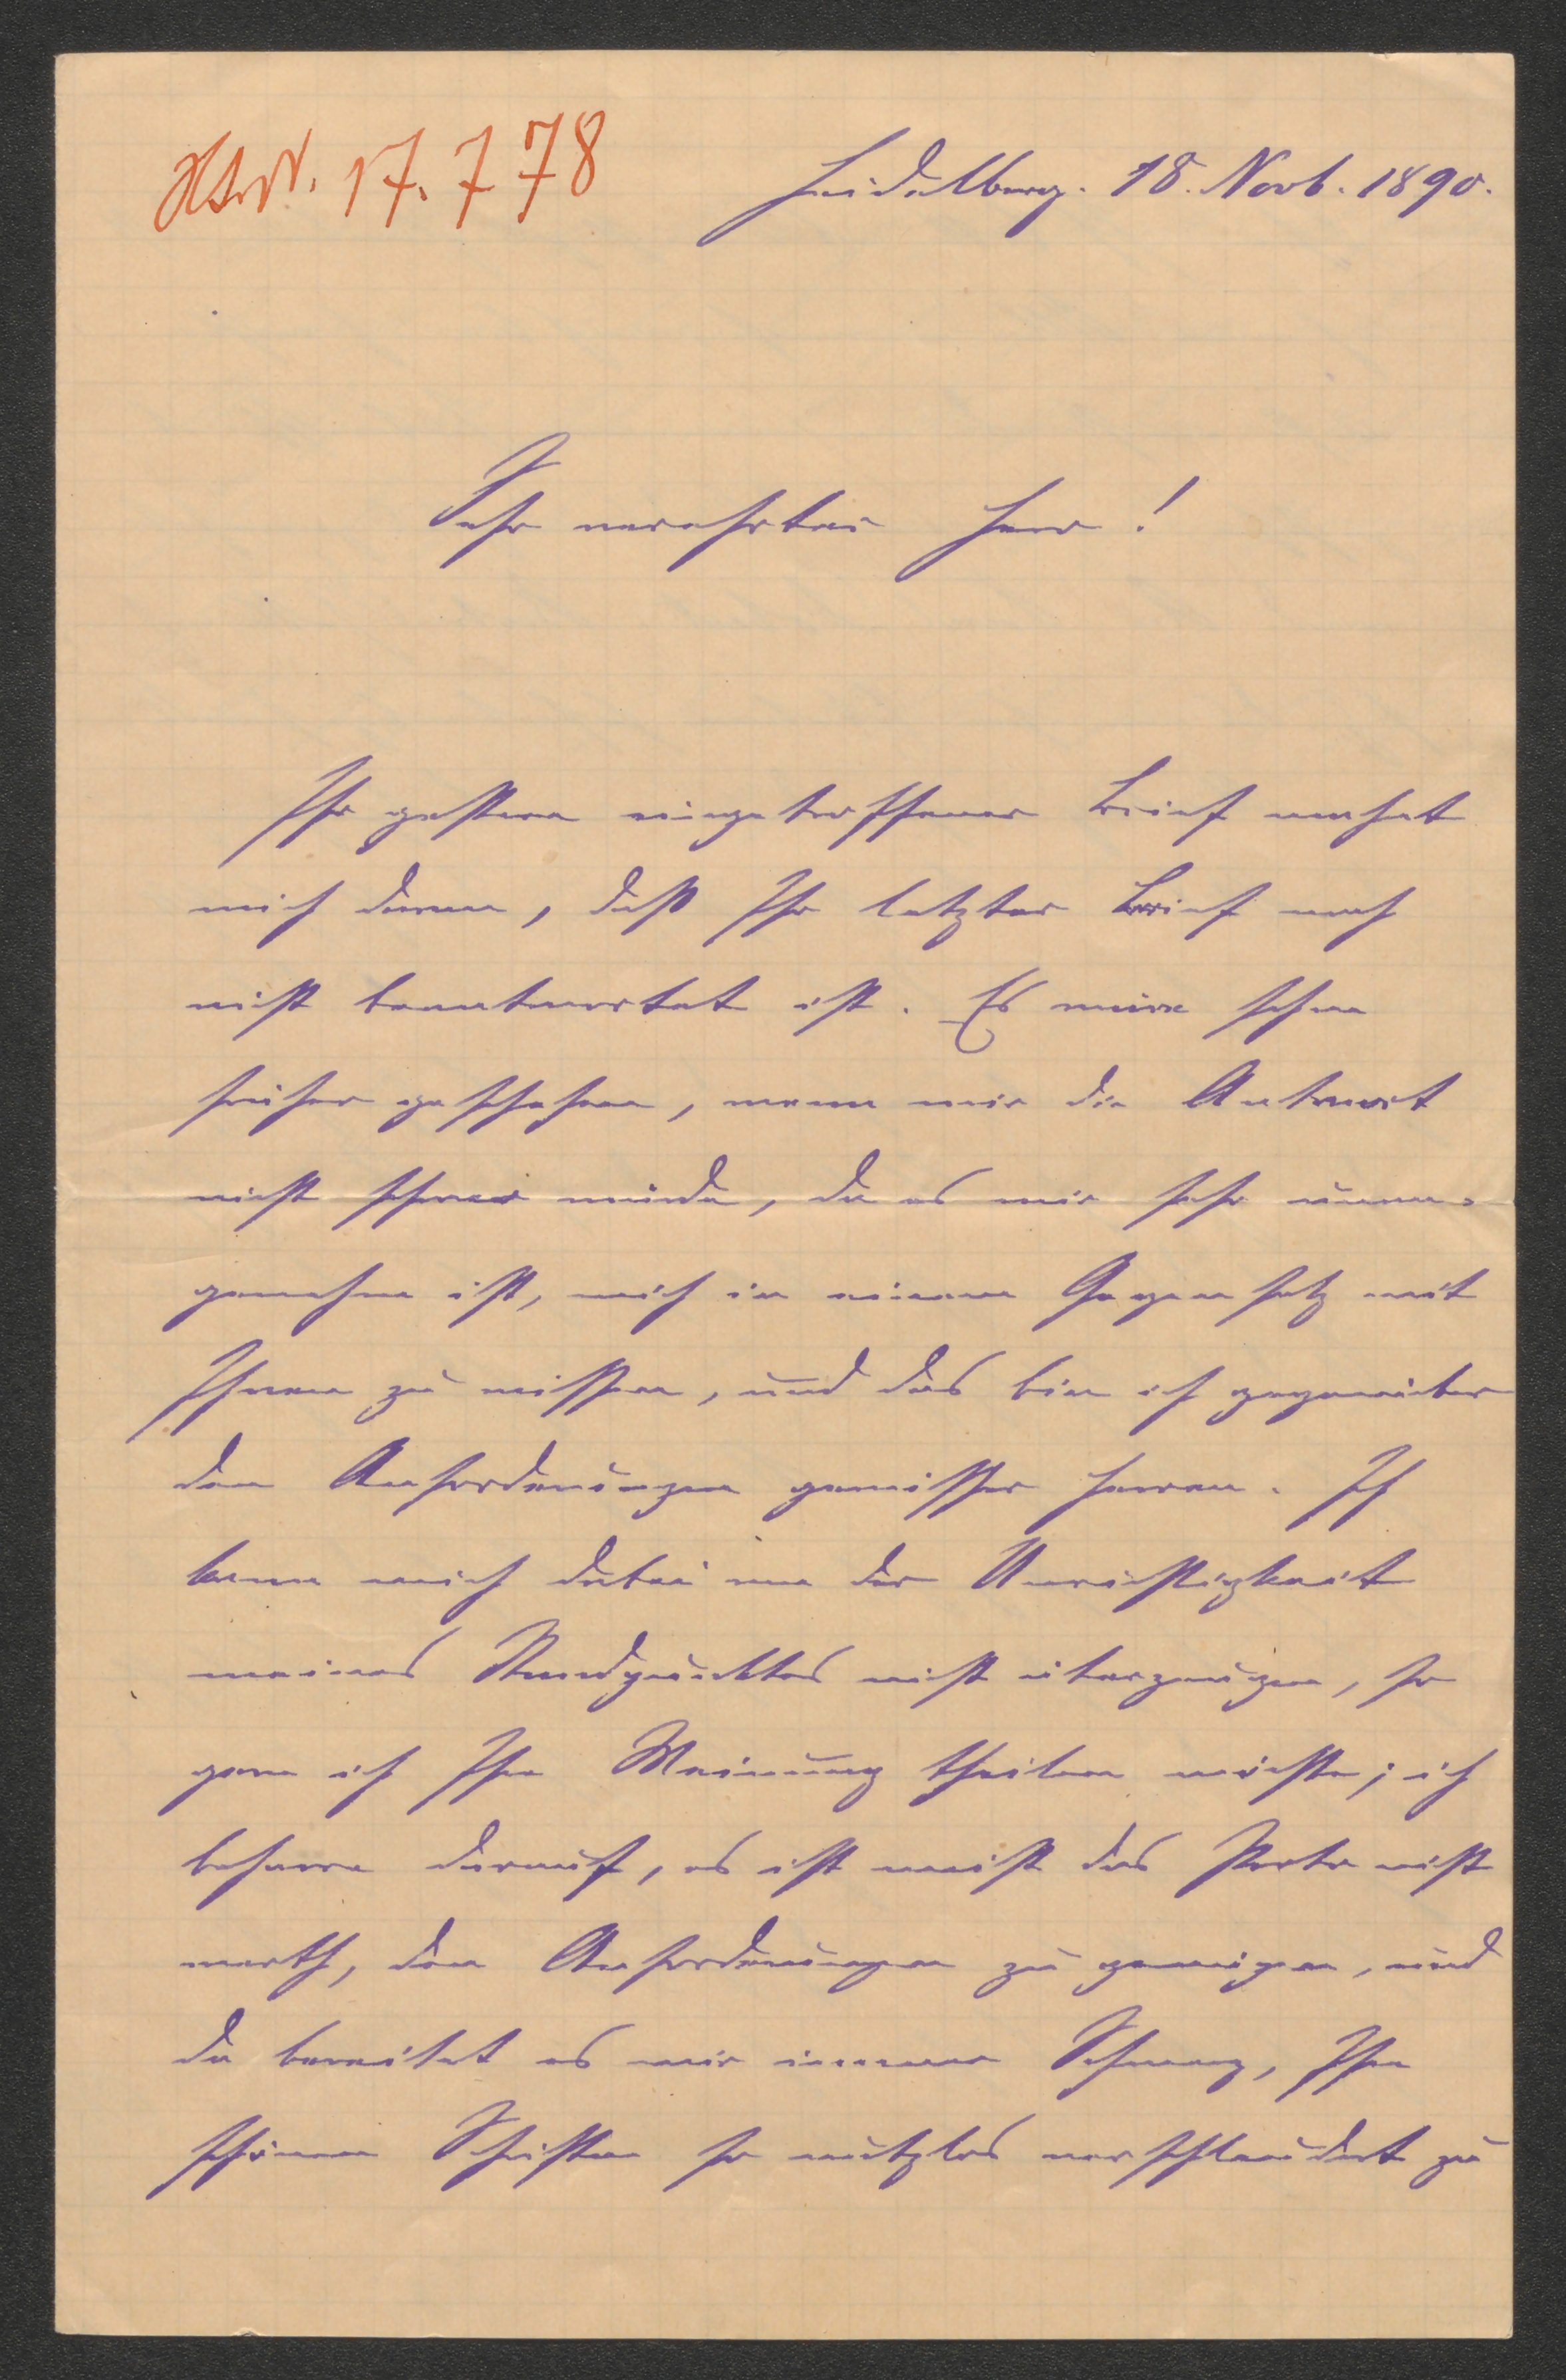 HsN. 17.778
Heidelberg. 18. Novb. 1890.
Sehr verehrter Herr!
Ihr gestern eingetroffener Brief mahnt
mich daran, daß Ihr letzter Brief noch
nicht beantwortet ist. Es wäre schon
früher geschehen, wenn mir die Antwort
nicht schwer würde, da es mir sehr unan-
genehm ist, mich in einem Gegensatz mit
Ihnen zu wissen, und das bin ich gegenüber
den Anforderungen gewisser Herren. Ich
kann mich dabei von der Unrichtigkeit
meines Standpunktes nicht überzeugen, so
gern ich Ihre Meinung theilen möchte; ich
beharre darauf, es ist meist das Porto nicht
werth, den Anforderungen zu genügen, und
da bereitet es mir immer Schmerz, Ihre
schönen Schriften so nutzlos verschleudert zu